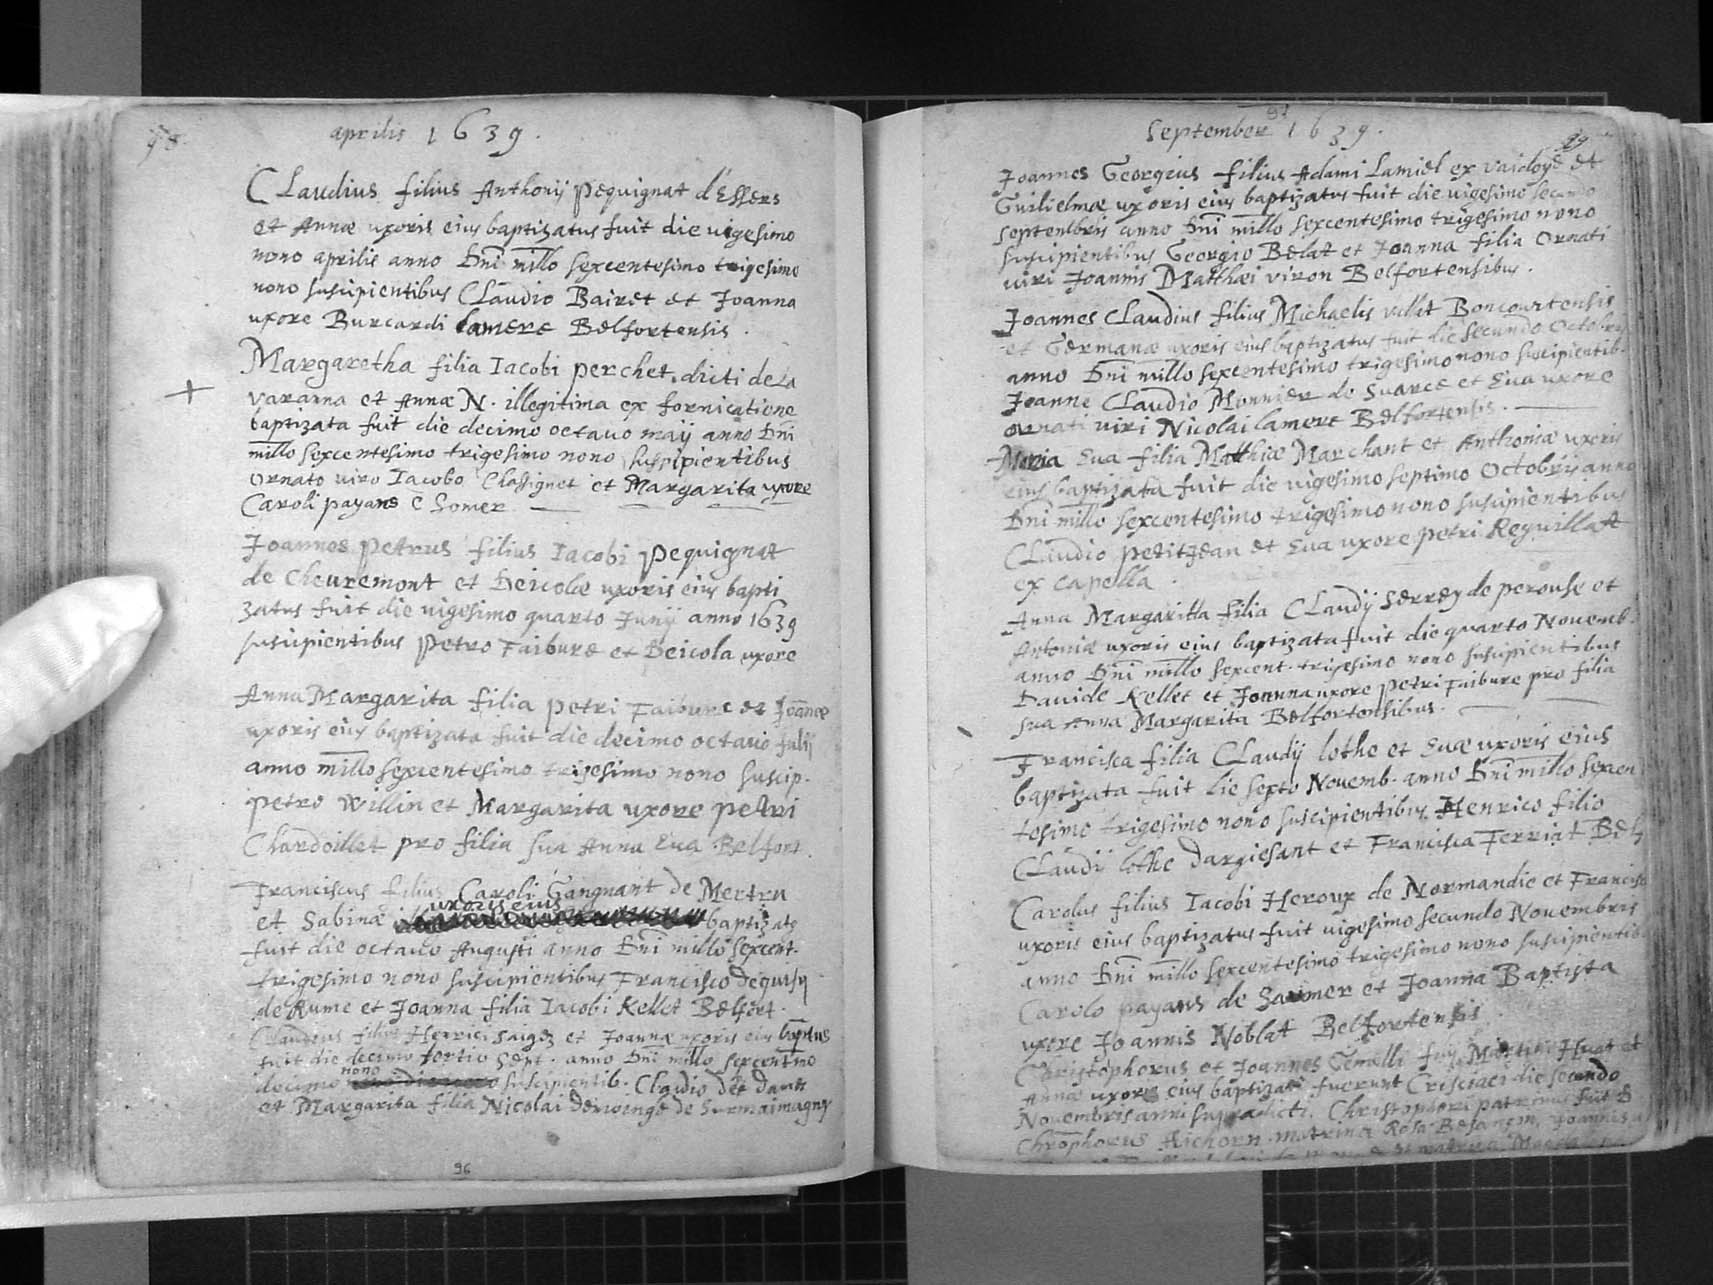 98.
aprilis 1639.
Claudius filius Anthonij pequignat d'Essers
et Annæ uxoris eius baptizatus fuit die vigesimo
nono aprilis anno Dni millo sexcentesimo trigesimo
nono suscipientibus Claudio Bairet et Joanna
uxore Burcardi lamere Belfortensis.
Margaretha filia Iacobi perchet. dicti de la
+
vararna et Annæ N. illegitima ex fornicatione
baptizata fuit die decimo octavo maij anno Dni
millo sexcentesimo trigesimo nono suscipientibus
ornato viro Iacobo Chassignet et Margarita uxore
Caroli payans e Somer
Joannes petrus filius Iacobi pequignat
de Cheuremont et Deicolæ uxoris eius bapti
zatus fuit die uigesimo quarto Junij anno 1639
suscipientibus petro Faibure et Deicola uxore
Anna Margarita filia petri Faibure et Joannæ
uxoris eius baptizata fuit die decimo octavo Julij
anno millo sexcentesimo trigesimo nono suscip.
petro Willin et Margarita uxore petri
Chardoillet pro filia sua Anna Eua Belfort.
Franciscus filius Caroli Gangnant de Mertru
uxoris eius
et Sabinæ baptizats
fuit die octavo Augusti anno Dni millo sexcent.
trigesimo nono suscipientibus Francisco
de Rume et Joanna filia Iacobi Kellet Belfort.
Claudius filius Henrici Saigez et Joannæ uxoris eius baptus
fuit die decimo tertio Sept. anno Dni millo sexcentmo
decimo nono suscipientib. Claudio
et Margarita filia Nicolai de Sermaimagny
96
97
September 1639.
99
Joannes Georgius filius Adami Lamiel ex vaidoye et
Guilielmæ uxoris eius baptizatus fuit die uigesimo secundo
septembris anno Dni millo sexcentesimo trigesimo nono
suscipientibus Georgio Belat et Joanna filia Ornati
viri Joannis Matthæi viron Belfortensibus.
Joannes Claudius filius Michaelis vallet Boncourtensis
et Germanæ uxoris eius baptizatus fuit die secundo Octobris
anno Dni millo sexcentesimo trigesimo nono suscipientib.
Joanne Claudio Monnier de Suarce et Eua uxore
ornati viri Nicolai lamere Belfortensis.
Maria Eua filia Matthiæ Marchant et Anthoniæ uxoris
eius baptizata fuit die uigesimo septimo Octobris anno
Dni millo sexcentesimo trigesimo nono suscipientibus
Claudio petitJean et Eua uxore petri Reguillat
ex capella.
Anna Margaritta filia Claudij Serrey de perouse et
Antoniæ uxoris eius baptizata fuit die quarto Novemb.
anno Dni millo sexcent. trigesimo nono suscipientibus
Dauide Kellet et Joanna uxore petri Faibure pro filia
sua Anna Margarita Belfortensibus.
Francisca filia Claudij lothe et Euæ uxoris eius
baptizata fuit die sexto Novemb. anno Dni millo sexcen
tesimo trigesimo nono suscipientibus Henrico filio
Claudij lothe dargiesant et Francisca Ferriat Belf
Carolus filius Iacobi Heroux de Normandie et Francisc
uxoris eius baptizatus fuit uigesimo secundo Nouembris
anno Dni millo sexcentesimo trigesimo nono suscipientib
Carolo payans de Saumer et Joanna Baptista
uxore Joannis Noblat Belfortensis
Christophorus et Joannes Gemelli filij Martini Huat et
Annæ uxoris eius baptizati fuerunt Crisciaci die secundo
Nouembris anni supradicti. Christophori patrinus fuit D
Chrophorus Aichorn matrina Rosa Besancon, Joannis